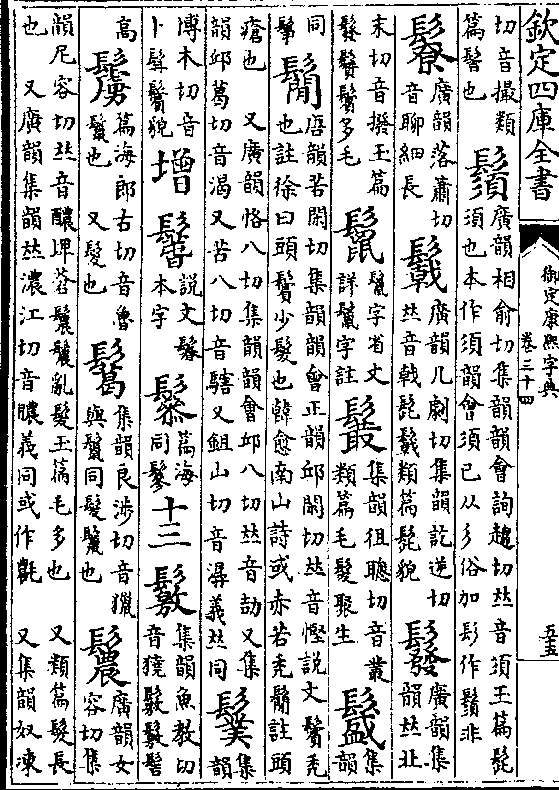 欽定四庫全書
御定康熙字典
卷三十四
五五
切音撮類
篇髻也
鬚
廣韻相俞切集韻韻會詢趨切𠀤音須玉篇髭
須也本作須韻會須已从彡俗加髟作鬚非
廣韻落蕭切
音聊細長
廣韻几劇切集韻訖逆切
𠀤音戟髭類篇髭貌
廣韻集
韻𠀤北
末切音撥玉篇
鬢多毛
鬣字省文
詳鬣字註
集韻徂聰切音叢
類篇毛髮聚生
集
韻
同
鬇
鬜
唐韻苦閑切集韻韻會正韻邱閑切𠀤音慳說文鬢禿
也註徐曰頭鬢少髮也韓愈南山詩或赤若禿鬜註頭
瘡也 又廣韻恪八切集韻韻會邱八切𠀤音劼又集
韻邱葛切音渴又苦八切音又鉏山切音潺義𠀤同
集
韻
博木切音
卜鬢貌
增
說文
本字
篇海
同
十三
集韻魚教切
音獟髻
高
篇海郎古切音魯
鬣也 又髮也
集韻良涉切音獵
與鬣同髮鬣也
鬞
廣韻女
容切集
韻尼容切𠀤音醲埤蒼鬞亂髮玉篇毛多也 又類篇髮長
也 又廣韻集韻𠀤濃江切音膿義同或作 又集韻奴凍